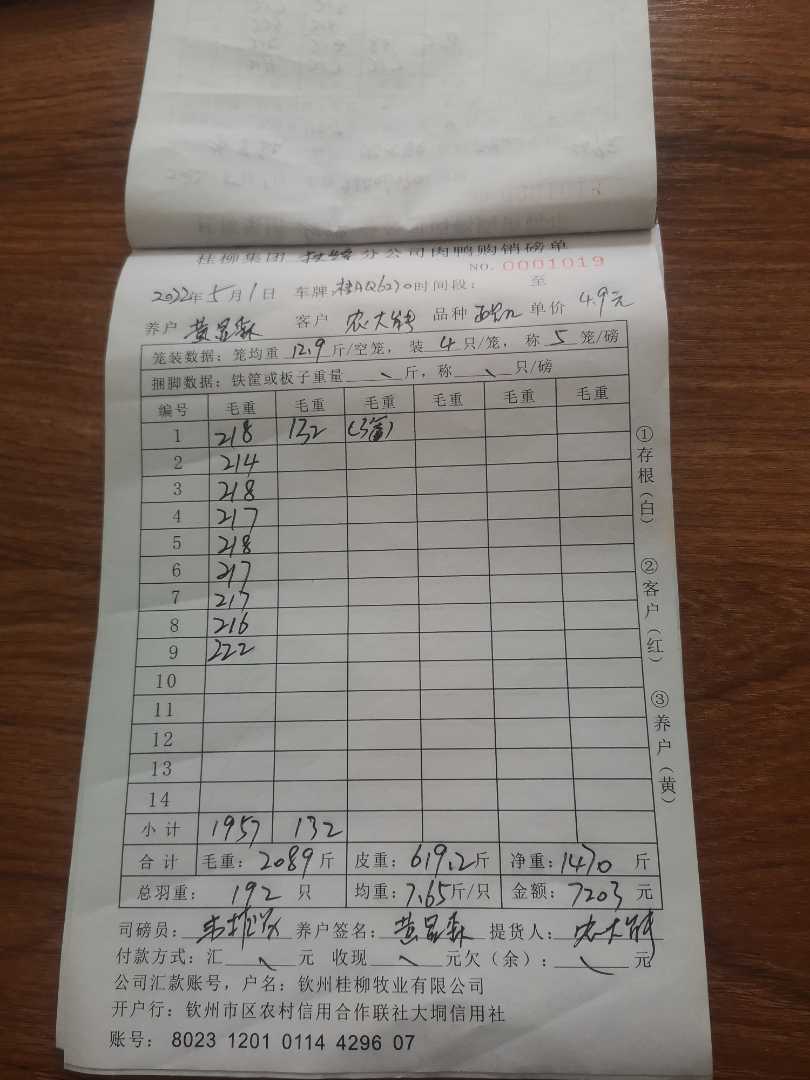 桂柳集团 分公司肉鸭购销磅单
NO. 0001019
2022年5月1日 车牌:桂AQ6270时间段: 至
养户 黄显森 客户 农大能 品种 单价 4.9元
笼装数据:笼均重 12.9 斤/空笼, 装 4 只/笼, 称 5 笼/磅
捆脚数据:铁筐或板子重量 \ 斤,称 \ 只/磅
编号 毛重 毛重 毛重 毛重 毛重 毛重
1 218 132 (3笼)
2 214
3 218
4 217
5 218
6 217
7 217
8 216
9 222
10
11
12
13
14
小计 1957 132
合计 毛重: 2089 斤 皮重: 619.2斤 净重: 1470 斤
总羽重: 192 只 均重: 7.65斤/只 金额: 7203 元
司磅员: 养户签名: 黄显森 提货人: 农大能
付款方式:汇 \ 元 收现 \ 元欠(余): \ 元
公司汇款账号,户名:钦州桂柳牧业有限公司
开户行:钦州市区农村信用合作联社大垌信用社
账号: 8023 1201 0114 4296 07
①存根(白) ②客户(红) ③养户(黄)